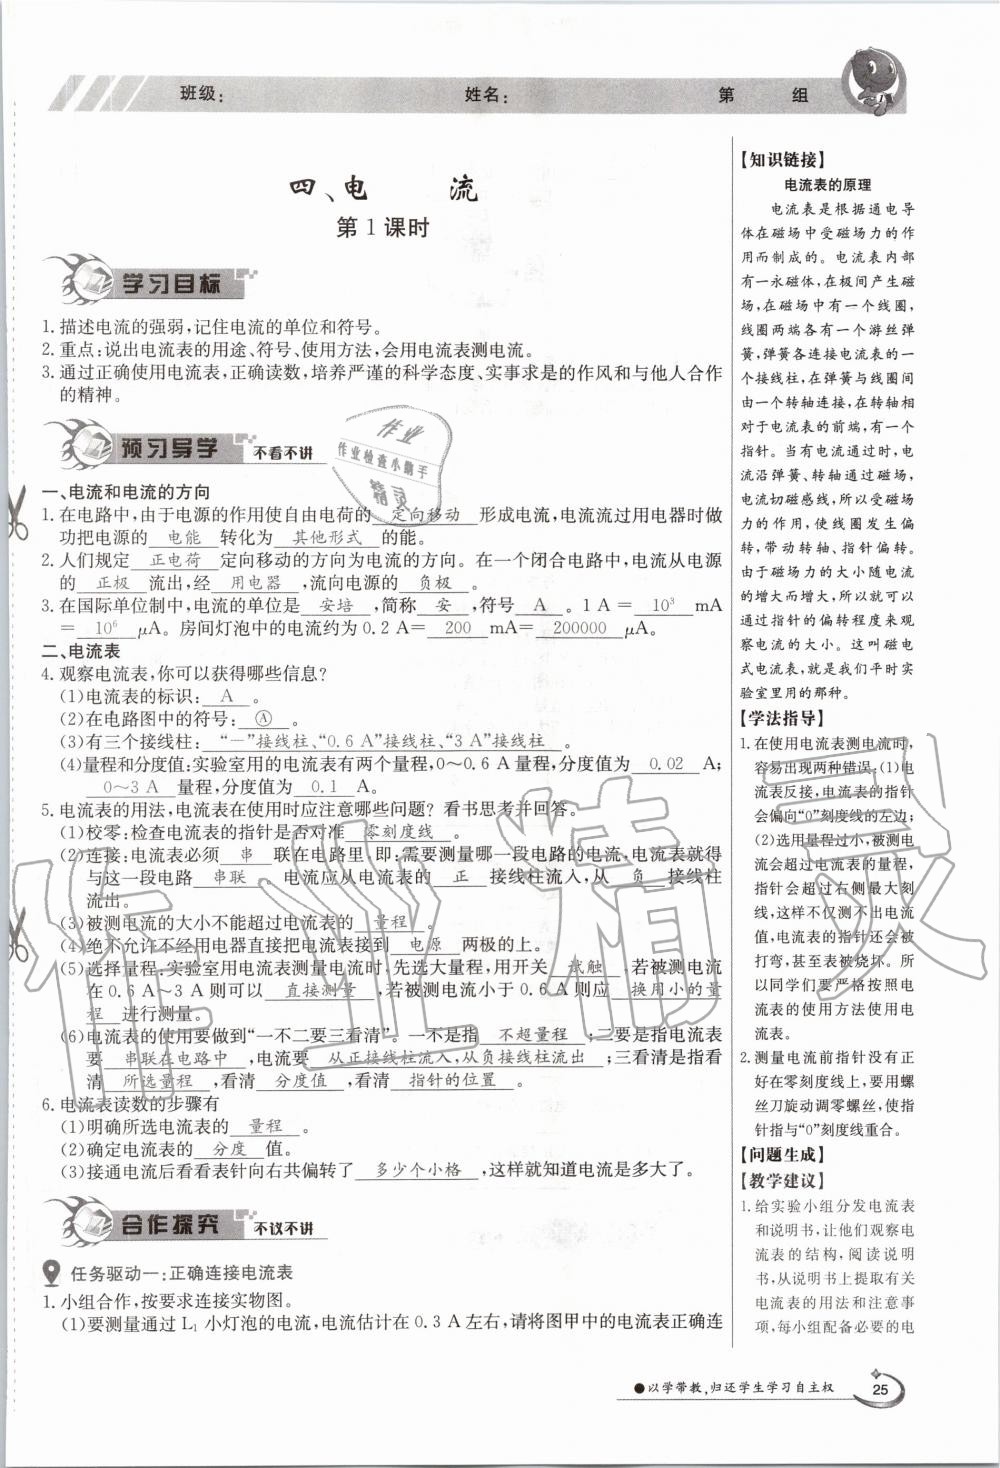 班级：
姓名：
第 组
四、电 流
第1课时
学习目标
1. 描述电流的强弱，记住电流的单位和符号。
2. 重点：说出电流表的用途、符号、使用方法，会用电流表测电流。
3. 通过正确使用电流表，正确读数，培养严谨的科学态度、实事求是的作风和与他人合作
的精神。
预习导学 不看不讲
一、电流和电流的方向
1. 在电路中，由于电源的作用使自由电荷的 定向移动 形成电流，电流流过用电器时做
功把电源的 电能 转化为 其他形式 的能。
2. 人们规定 正电荷 定向移动的方向为电流的方向。在一个闭合电路中，电流从电源
的 正极 流出，经 用电器 ，流向电源的 负极 。
3. 在国际单位制中，电流的单位是 安培 ，简称 安 ，符号 A 。1 A＝ 10³ mA
＝ 10⁶ μA。房间灯泡中的电流约为 0.2 A＝ 200 mA＝ 200000 μA。
二、电流表
4. 观察电流表，你可以获得哪些信息？
(1)电流表的标识： A 。
(2)在电路图中的符号： Ⓐ 。
(3)有三个接线柱： “－”接线柱、“0.6 A”接线柱、“3 A”接线柱 。
(4)量程和分度值：实验室用的电流表有两个量程，0～0.6 A 量程，分度值为 0.02 A；
0～3 A 量程，分度值为 0.1 A。
5. 电流表的用法，电流表在使用时应注意哪些问题？看书思考并回答。
(1)校零：检查电流表的指针是否对准 零刻度线 。
(2)连接：电流表必须 串 联在电路里，即：需要测量哪一段电路的电流，电流表就得
与这一段电路 串联 。电流应从电流表的 正 接线柱流入，从 负 接线柱
流出。
(3)被测电流的大小不能超过电流表的 量程 。
(4)绝不允许不经用电器直接把电流表接到 电源 两极的上。
(5)选择量程：实验室用电流表测量电流时，先选大量程，用开关 试触 ，若被测电流
在 0.6 A～3 A 则可以 直接测量 ，若被测电流小于 0.6 A 则应 换用小的量
程 进行测量。
(6)电流表的使用要做到“一不二要三看清”。一不是指 不超量程 ；二要是指电流表
要 串联在电路中 ，电流要 从正接线柱流入，从负接线柱流出 ；三看清是指看
清 所选量程 ，看清 分度值 ，看清 指针的位置 。
6. 电流表读数的步骤有
(1)明确所选电流表的 量程 。
(2)确定电流表的 分度 值。
(3)接通电流后看看表针向右共偏转了 多少个小格 ，这样就知道电流是多大了。
合作探究 不议不讲
任务驱动一：正确连接电流表
1. 小组合作，按要求连接实物图。
(1)要测量通过 L₁ 小灯泡的电流，电流估计在 0.3 A 左右，请将图甲中的电流表正确连
【知识链接】
电流表的原理
电流表是根据通电导
体在磁场中受磁场力的作
用而制成的。电流表内部
有一永磁体，在极间产生磁
场，在磁场中有一个线圈，
线圈两端各有一个游丝弹
簧，弹簧各连接电流表的一
个接线柱，在弹簧与线圈间
由一个转轴连接，在转轴相
对于电流表的前端，有一个
指针。当有电流通过时，电
流沿弹簧、转轴通过磁场，
电流切磁感线，所以受磁场
力的作用，使线圈发生偏
转，带动转轴、指针偏转。
由于磁场力的大小随电流
的增大而增大，所以就可以
通过指针的偏转程度来观
察电流的大小。这叫磁电
式电流表，就是我们平时实
验室里用的那种。
【学法指导】
1. 在使用电流表测电流时，
容易出现两种错误：(1)电
流表反接，电流表的指针
会偏向“0”刻度线的左边；
(2)选用量程过小，被测电
流会超过电流表的量程，
指针会超过右侧最大刻
线，这样不仅测不出电流
值，电流表的指针还会被
打弯，甚至表被烧坏。所
以同学们要严格按照电
流表的使用方法使用电
流表。
2. 测量电流前指针没有正
好在零刻度线上，要用螺
丝刀旋动调零螺丝，使指
针指与“0”刻度线重合。
【问题生成】
【教学建议】
1. 给实验小组分发电流表
和说明书，让他们观察电
流表的结构，阅读说明
书，从说明书上提取有关
电流表的用法和注意事
项，每小组配备必要的电
●以学带教，归还学生学习自主权
25
作业
作业检查小帮手
精灵
作业精灵